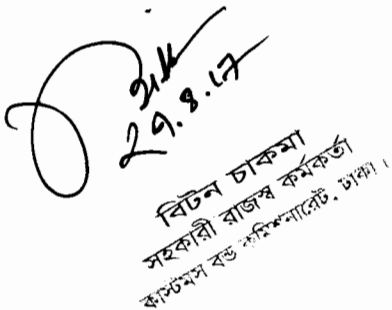 29.8.17
বিটন চাকমা
সহকারী রাজস্ব কর্মকর্তা
কাস্টমস বন্ড কমিশনারেট, ঢাকা।